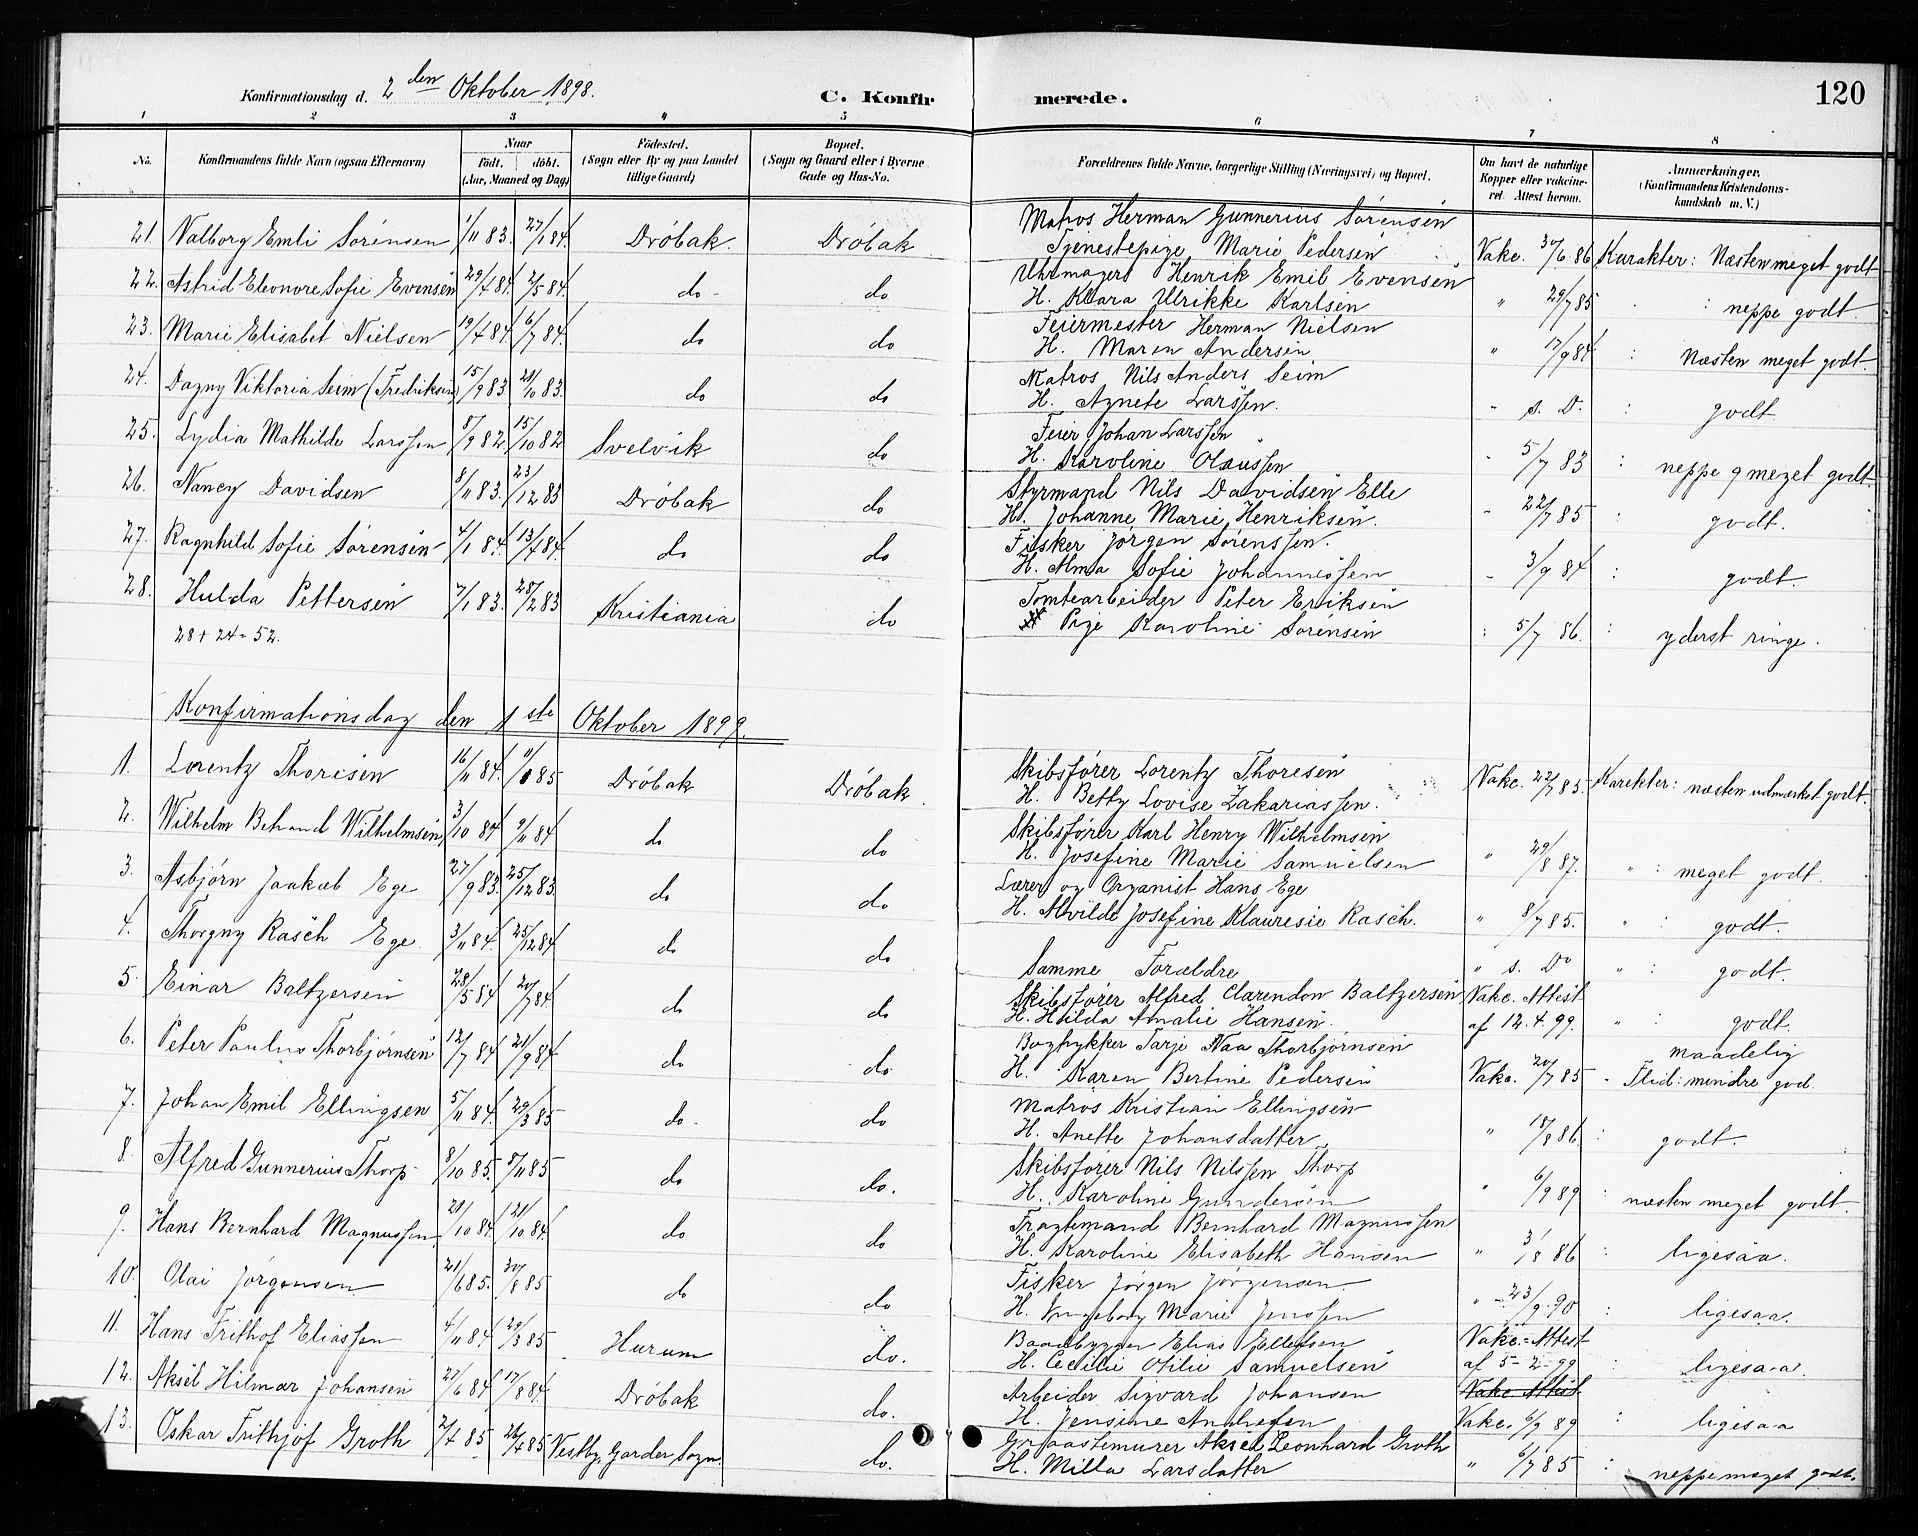 Konfirmationsdag d. 2den Oktober 1898. C. Konfirmerede. 120
1 2 3 4 5 6 7 8
No. Konfirmandens fulde Navn (ogsaa Efternavn) Naar født. døbt. (Aar, Maaned og Dag) Fødested. (Sogn eller By og paa Landet tillige Gaard) Bopæl. (Sogn og Gaard eller i Byerne Gade og Hus-No. Forældrenes fulde Navne, borgerlige Stilling (Næringsvei) og Bopæl. Om havt de naturlige Kopper eller vakcineret. Attest herom. Anmærkninger. (Konfirmandens Kristendomskundskab m. V.)
21. Valborg Emli Sørensen 1/11 83. 27/1 84. Drøbak. Drøbak Matros Herman Gunnerius Sørensen
Tjenestepige Marie Pedersen Vakc. 30/6 86 Karakter: Næsten meget godt
22. Astrid Eleonore Sofie Evensen 29/1 84. 2/5 84. do do Uhrmager Henrik Emil Evensen
H. Klara Ulrikke Karlsen " 29/7 85 : neppe godt
23. Marie Elisabet Nielsen 19/4 84. 6/7 84. do do Feiermester Herman Nielsen
H. Maren Andersen " 17/9 84 : Næsten meget godt.
24. Dagny Viktoria Seim (Fredriksen) 15/9 83 21/10 83. do do Matros Nils Anders Seim
H. Agnete Larssen. " s. D. : godt
25. Lydia Mathilde Larssen 8/9 82 15/10 82 Svelvik do Feier Johan Larssen
H. Karoline Olaussen " 5/7 83 : neppe meget godt.
26. Nancy Davidsen 8/11 83. 23/12 83 Drøbak do Styrmand Nils Davidsen Elle
H. Johanne Marie Henriksen. " 22/7 85 : godt.
27. Ragnhild Sofie Sørensen 4/1 84. 13/4 84. do do Fisker Jørgen Sørenssen.
H. Alma Sofie Johannessen " 3/9 84 : godt.
28. Hulda Pettersen 7/1 83. 28/2 83 Kristiania do Tomtearbeider Peter Eriksen
Pige Karoline Sørensen " 5/7 86. : yderst ringe.
28 + 24 = 52.
Konfirmationsdag den 1ste Oktober 1899.
1. Lorentz Thoresen 16/11 84. 11/1 85 Drøbak Drøbak Skibsfører Lorentz Thoresen
H. Betty Lovise Zakariassen. Vakc. 22/7 85. Karekter: næsten udmærket godt.
2. Wilhelm Behrand Wilhelmsen 3/10 84 9/11 84 do do Skibsfører Karl Henry Wilhelmsen
H. Josefine Marie Samuelsen " 29/8 87. " : meget godt.
3. Asbjørn Jaakub Ege 27/9 83. 25/12 83. do do Lærer og Organist Hans Ege
H. Alvilde Josefine Klauresie Rasch. " 8/7 85. " : godt.
4. Thorgny Rasch Ege 3/11 84. 25/12 84 do do Samme Forældre " s. Do " : godt.
5. Einar Baltzersen 28/5 84 20/7 84 do do Skibsfører Alfred Clarendon Baltzersen Vakc. Attest
H. Hilda Amalie Hansen. af 12.4.99. " : godt.
6. Peter Paulus Thorbjørnsen 12/7 84 21/9 84 do do Bogtrykker Tarje Naa Thorbjørnsen maadelig
H. Karen Bertine Pedersen Vakc. 20/7 85 " Flid: mindre god.
7. Johan Emil Ellingsen 5/11 84. 29/3 85 do do Matros Kristian Ellingsen
H. Anette Johansdatter " 18/8 86 : godt.
8. Alfred Gunnerius Thorp 8/10 85. 8/11 85 do do. Skibsfører Nils Nilssen Thorp
H. Karoline Gundersen " 6/9 89 : næsten meget godt.
9. Hans Bernhard Magnussen. 20/10 84. 21/10 84. do do Fragtemand Bernhard Magnussen
H. Karoline Elisabeth Hansen " 3/8 86 : ligesaa.
10. Olai Jørgensen 21/6 85. 30/8 85 do do Fisker Jørgen Jørgensen
H. Ingeborg Marie Jenssen " 23/9 90 : ligesaa.
11. Hans Frithof Eliassen 4/11 84 29/3 85 Hurum do. Baadbygger Elias Ellefsen Vakc. Attest
H. Cecilie Otilie Samuelsen af 5-2-99 : ligesaa.
12. Aksel Hilmar Johansen 27/6 84 17/8 84. Drøbak do. Arbeider Sigvard Johansen Vakc. Attest
H. Jensine Andresen Vakc. 6/9 89 : ligesaa
13. Oskar Frithjof Groth 2/4 85 26/4 85 Vestby, Garder Sogn. do. Graastemurer Aksel Leonhard Groth
H. Milla Larsdatter " 6/7 85 : neppe meget godt.